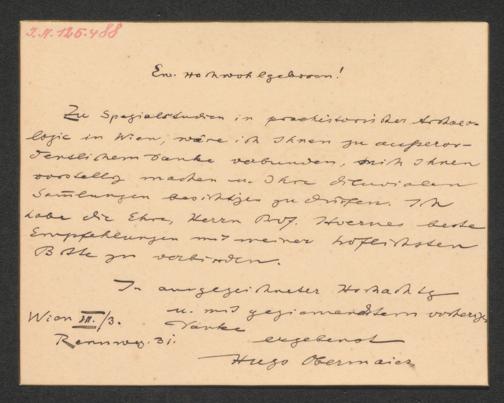 J.N. 125.488
Ew. Hochwohlgeboren!
Zu Spezialstudien in praehistorischer Archaeo-
logie in Wien, wäre ich Ihnen zu außeror-
dentlichem Danke verbunden, mich Ihnen
vorstellig machen u. Ihre diluvialen
Sammlungen besichtigen zu dürfen. Ich
habe die Ehre, Herrn Prof. Hoernes beste
Empfehlungen mit meiner höflichsten
Bitte zu verbinden.
In ausgezeichneter Hochachtg
u. mit geziemendstem vorherigen
Danke
Wien III/3.
Rennweg 31.
ergebenst
Hugo Obermaier